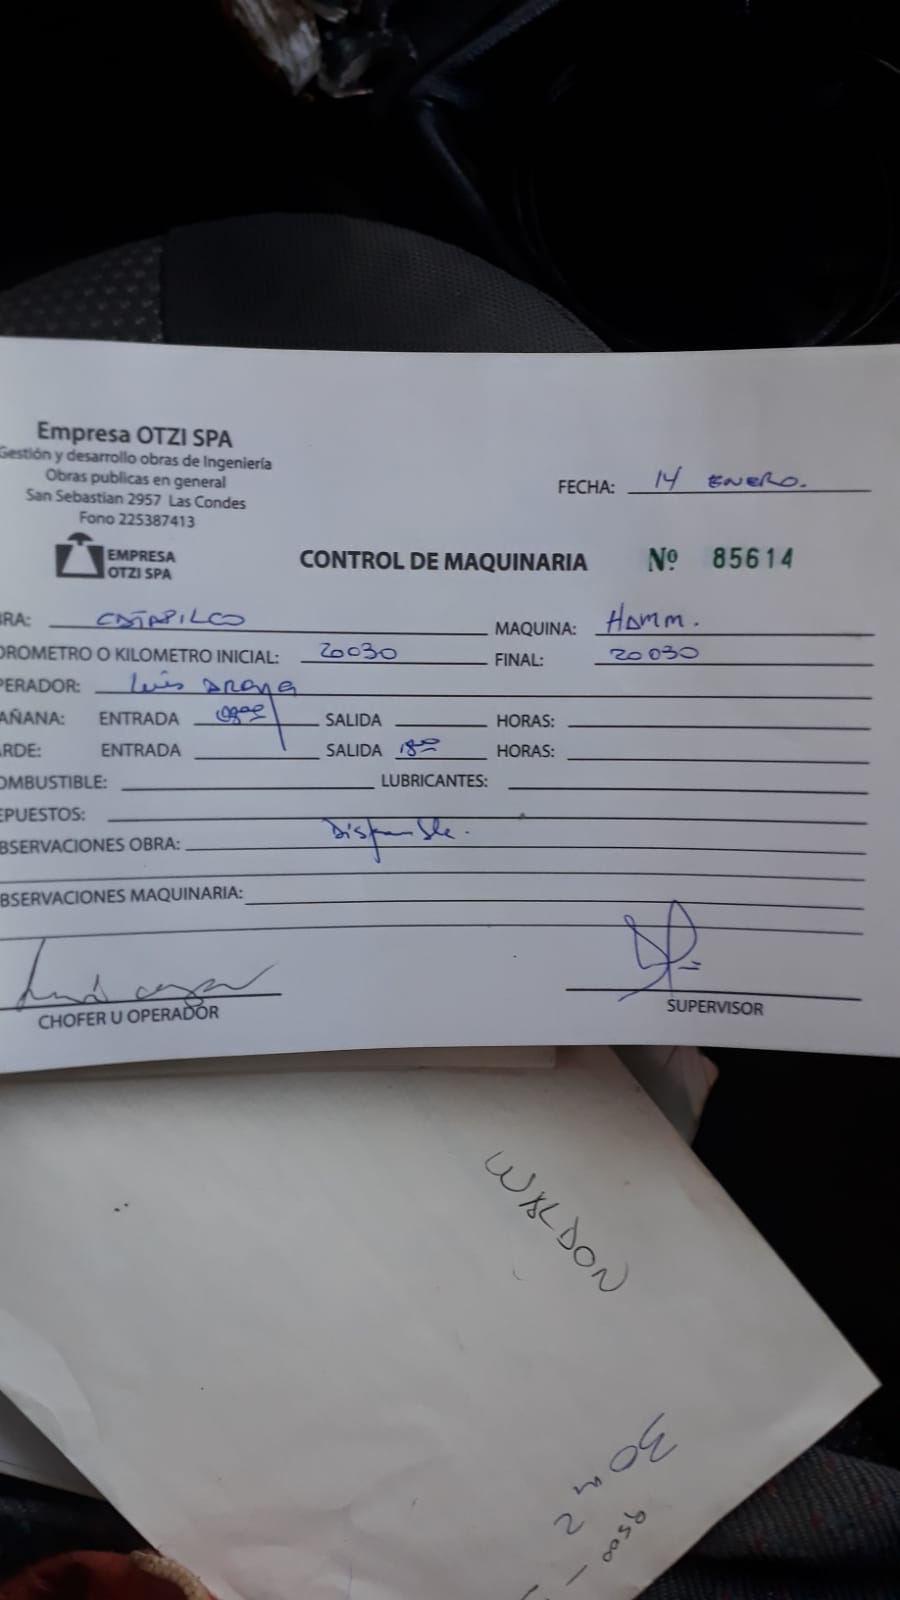 Empresa OTZI SPA
Gestión y desarrollo obras de Ingeniería
Obras publicas en general
San Sebastian 2957 Las Condes
Fono 225387413
EMPRESA
OTZI SPA
FECHA: 14 ENERO.
CONTROL DE MAQUINARIA Nº 85614
RA: CATAPILCO MAQUINA: HAMM.
OROMETRO O KILOMETRO INICIAL: 20030 FINAL: 20030
PERADOR: Luis ARAYA
AÑANA: ENTRADA SALIDA HORAS:
RDE: ENTRADA SALIDA 1800 HORAS:
OMBUSTIBLE: LUBRICANTES:
EPUESTOS:
BSERVACIONES OBRA: Disponible.
BSERVACIONES MAQUINARIA:
CHOFER U OPERADOR SUPERVISOR
WALDON
30 m